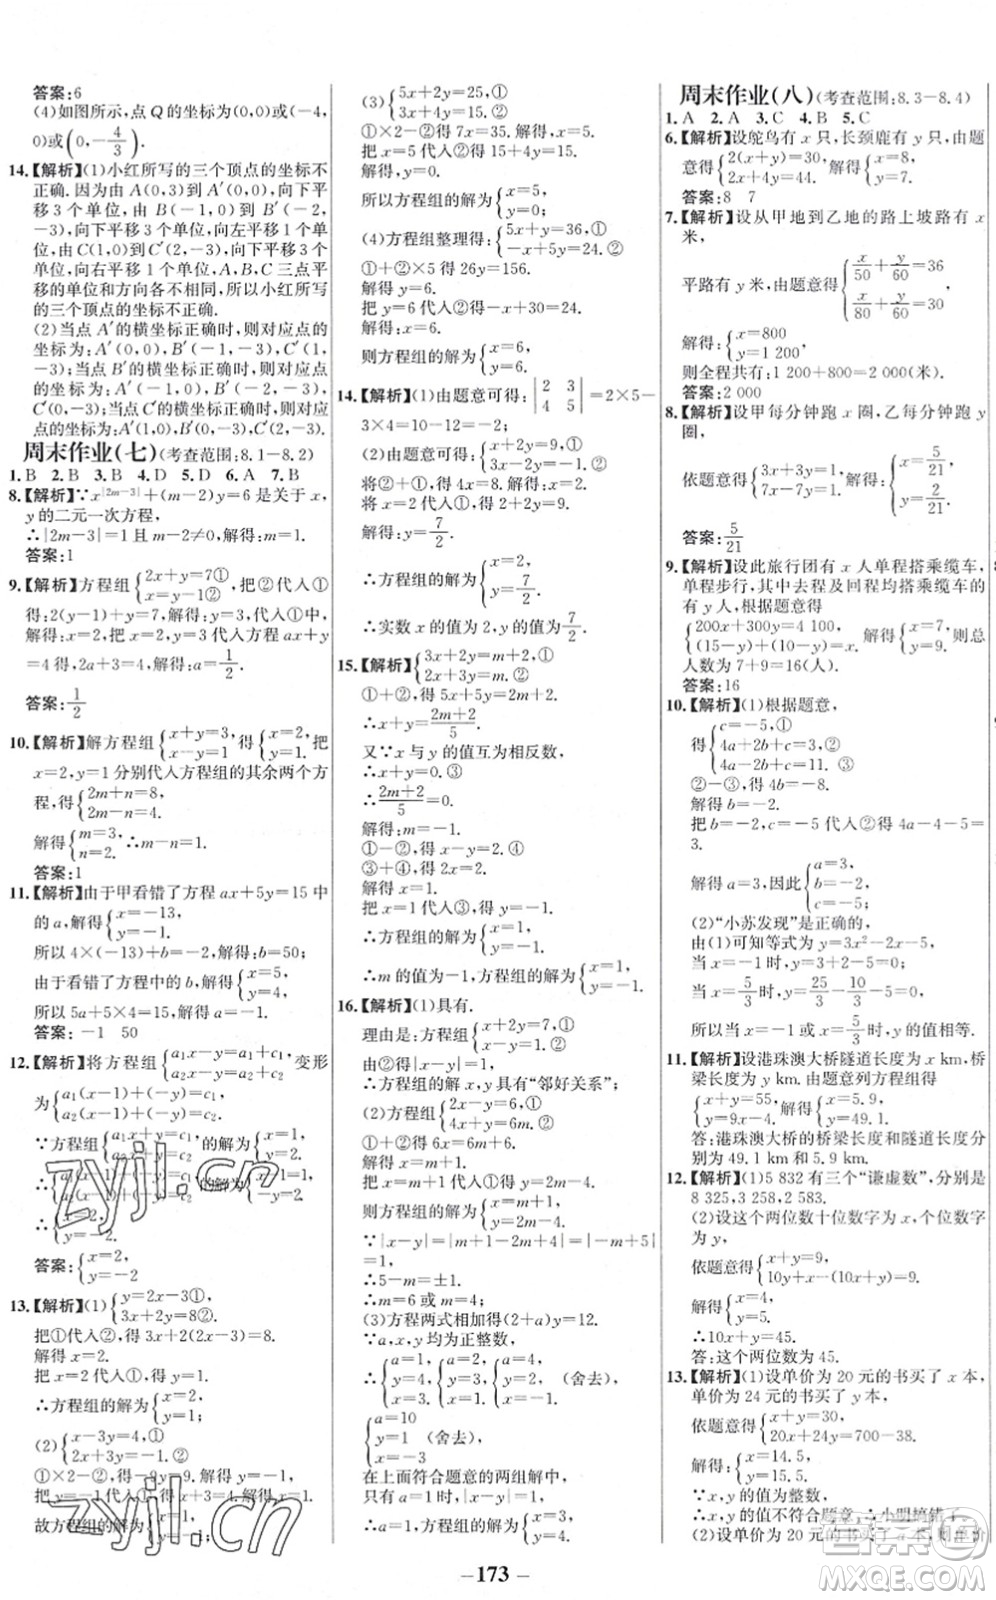 答案:6
(4)如图所示,点 Q 的坐标为(0,0)或(-4,
0)或(0,-4/3).
14.【解析】(1)小红所写的三个顶点的坐标不
正确.因为由 A(0,3)到 A′(-1,0),向下平
移 3 个单位,由 B(-1,0)到 B′(-2,
-3),向下平移 3 个单位,向左平移 1 个单
位,由 C(1,0)到 C′(2,-3),向下平移 3 个
单位,向右平移 1 个单位,A,B,C 三点向下
平移的单位和方向各不相同,所以小红所写的
三个顶点的坐标不正确.
(2)当点 A′的横坐标正确时,则对应点的坐标
为:A′(0,0),B′(-1,-3),C′(1,
-3);当点 B′的横坐标正确时,则对应点的坐
标为:A′(-1,0),B′(-2,-3),C′(0,
-3);当点 C′的横坐标正确时,则对应
点的坐标为:A′(1,0),B′(0,-3),C′(2,-3).
周末作业(七)(考查范围:8.1-8.2)
1. B 2. B 3. B 4. D 5. D 6. A 7. B
8.【解析】∵x^|2m-3|+(m-2)y=6 是关于 x,
y 的二元一次方程,
∴|2m-3|=1 且 m-2≠0,解得:m=1.
答案:1
9.【解析】方程组{2x+y=7① x=y-1②,把②代入①
得:2(y-1)+y=7,解得:y=3,代入①中,
解得:x=2,把 x=2,y=3 代入方程 ax+y
=4 得,2a+3=4,解得:a=1/2.
答案:1/2
10.【解析】解方程组{x+y=3, x-y=1 得{x=2, y=1,把
x=2,y=1 分别代入方程组的其余两个方
程,得{2m+n=8, 2m-n=4.
解得{m=3, n=2.∴m-n=1.
答案:1
11.【解析】由于甲看错了方程 ax+5y=15 中
的 a,解得{x=-13, y=-1.
所以 4×(-13)+b=-2,解得:b=50;
由于看错了方程中的 b,解得{x=5, y=4,
所以 5a+5×4=15,解得:a=-1.
答案: -1 50
12.【解析】将方程组{a₁x-y=a₁+c₁ a₂x-y=a₂+c₂ 变形
为{a₁(x-1)+(-y)=c₁, a₂(x-1)+(-y)=c₂.
∵方程组{a₁x+y=c₁ a₂x+y=c₂ 的解为{x=1,
答案:{x=2, y=-2
13.【解析】(1){y=2x-3①, 3x+2y=8②.
把①代入②,得 3x+2(2x-3)=8.
解得 x=2.
把 x=2 代入①,得 y=1.
∴方程组的解为{x=2, y=1.
(2){x-3y=4,① 2x+3y=-1.②
故方程组的解为{x=1, y=-1;
(3){5x+2y=25,① 3x+4y=15.②
①×2-②得 7x=35.解得:x=5.
把 x=5 代入②得 15+4y=15.
解得:y=0.
所以方程组的解为{x=5, y=0;
(4)方程组整理得:{5x+y=36,① -x+5y=24.②
①+②×5 得 26y=156.
解得:y=6.
把 y=6 代入②得-x+30=24.
解得:x=6.
则方程组的解为{x=6, y=6.
14.【解析】(1)由题意可得:|2 3 4 5|=2×5-
3×4=10-12=-2.
将①+②,得 4x=8.解得:x=2.
将 x=2 代入①,得 2+2y=9.
解得:y=7/2.
∴方程组的解为{x=2, y=7/2.
∴实数 x 的值为 2,y 的值为7/2.
15.【解析】{3x+2y=m+2,① 2x+3y=m.②
①+②,得 5x+5y=2m+2.
∴x+y=(2m+2)/5.
又∵x 与 y 的值互为相反数,
∴x+y=0.③
∴(2m+2)/5=0.
解得:m=-1.
①-②,得 x-y=2.④
③+④,得 2x=2.
解得 x=1.
把 x=1 代入③,得 y=-1.
∴方程组的解为{x=1, y=-1.
∴m 的值为-1,方程组的解为{x=1, y=-1.
16.【解析】(1)具有.
理由是:方程组{x+2y=7,① x-y=1.②
由②得:|x-y|=1.
方程组的解 x,y 具有“邻好关系”;
(2)方程组{2x-y=6,① 4x+y=6m.②
①+②得:6x=6+6m.
解得:x=1+m.
把 x=1+m 代入①得:y=2m-4.
则方程组的解为{x=m+1, y=2m-4.
∵|x-y|=|m+1-2m+4|=|-m+5|=1.
∴5-m=±1.
∴m=6 或 m=4;
(3)方程两式相加得(2+a)y=12.
∵a,x,y 均为正整数,
∴{a=1, y=4, x=3, {a=2, y=3, x=1, {a=4, y=2, x=-1 (舍去),
{a=10 y=1, x=-3 (舍去),
在上面符合题意的两组解中,
∴a=1,方程组的解为{x=3, y=4.
周末作业(八)(考查范围:8.3-8.4)
1. A 2. A 3. C 4. B 5. C
6.【解析】设鸵鸟有 x 只,长颈鹿有 y 只,由题
意得{2(x+y)=30, 2x+4y=44.解得:{x=8, y=7.
答案:8 7
7.【解析】设从甲地到乙地的路上坡路有 x
米,
平路有 y 米,根据题意得{x/50+y/60=36 x/80+y/60=30
解得:{x=800 y=1 200
则全程共有:1 200+800=2 000(米).
答案:2 000
8.【解析】设甲每分钟跑 x 圈,乙每分钟跑 y
圈,
依题意得{3x+3y=1, 7x-7y=1.解得:{x=5/21, y=2/21.
答案:5/21
9.【解析】设此旅行团有 x 人单程搭乘缆车,
单程步行,其中去程及回程均搭乘缆车的
有 y 人,根据题意得
{200x+300y=4 100, (15-y)+(10-y)=x.解得{x=7, y=9.则总
人数为 7+9=16(人).
答案:16
10.【解析】(1)根据题意,
得{c=-5,① 4a+2b+c=3,② 4a-2b+c=11.③
②-③,得 4b=-8.
解得 b=-2.
把 b=-2,c=-5 代入②得 4a-4-5=
3.
解得 a=3,因此{a=3, b=-2, c=-5;
(2)“小苏发现”是正确的,
由(1)可知等式为 y=3x²-2x-5,
当 x=-1 时,y=3+2-5=0;
当 x=5/3时,y=25/3-10/3-5=0.
所以当 x=-1 或 x=5/3时,y 的值相等.
11.【解析】设港珠澳大桥隧道长度为 x km,桥
梁长度为 y km.由题意列方程组得
{x+y=55, y=9x-4.解得{x=5.9, y=49.1.
答:港珠澳大桥的桥梁长度和隧道长度分
别为 49.1 km 和 5.9 km.
12.【解析】(1)5 832 有三个“谦虚数”,分别是
8 325,3 258,2 583.
(2)设这个两位数十位数字为 x,个位数字
为 y,
依题意得{x+y=9, 10y+x-(10x+y)=9.
解得{x=4, y=5.
∴10x+y=45.
答:这个两位数为 45.
13.【解析】(1)设单价为 20 元的书买了 x 本,
单价为 24 元的书买了 y 本,
依题意得{x+y=30, 20x+24y=700-38.
解得:{x=14.5, y=15.5.
∵x,y 的值为整数,
∴x,y 的值不符合题意,
- 173 -
答案圈
MXQE.COM
zyjl.cn
zyjl.cn